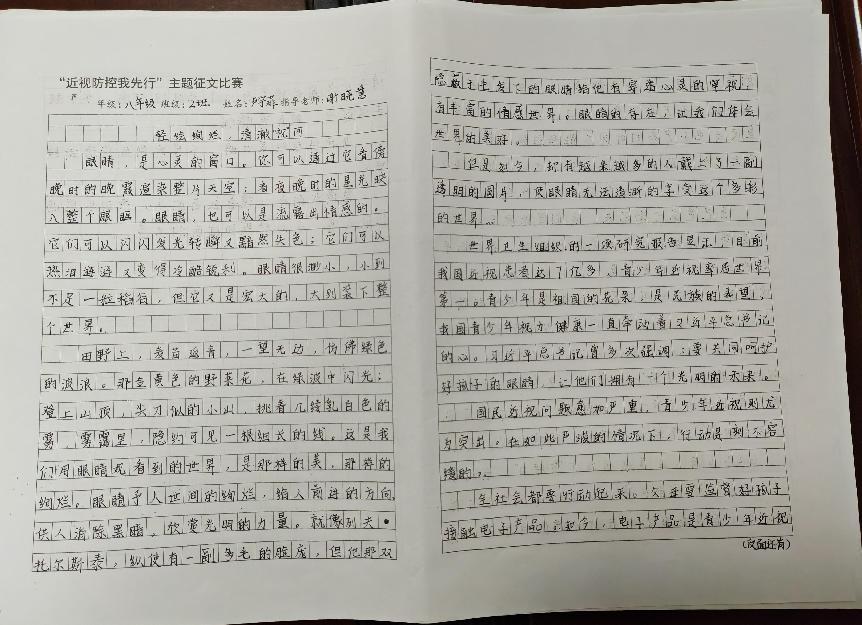 “近视防控我先行”主题征文比赛
年级：八年级 班级：2班 姓名： 指导老师：谢晓慧
轻炫绚烂，清澈视河
眼睛，是心灵的窗口。你可以通过它看傍
晚时的晚霞渲染整片天空；看夜晚时的星光映
入整个眼眶。眼睛，也可以是流露出情感的。
它们可以闪闪发光转瞬又黯然失色；它们可以
热泪 又变得冷酷锐利。眼睛很渺小，小到
不足一粒稻谷，但它又是宏大的，大到装下整
个世界。
田野上，麦苗返青，一望无边，仿佛绿色
的波浪。那金黄色的野菜花，在绿波中闪光；
登上山顶，尖刀似的小山，挑着几缕乳白色的
雾，雾霭里，隐约可见一根细长的线。这是我
们用眼睛 看到的世界，是那样的美，那样的
绚烂。眼睛予人世间的绚烂，给人前进的方向，
供人消除黑暗、欣赏光明的力量。就像列夫·
托尔斯泰，纵使有一副多毛的脸庞，但他那双
隐藏 的眼睛给他有穿透心灵的审视，
有丰富的情感世界。眼睛的存在，让我们体会
世界的美好。
但是如今，却有越来越多的人戴上了一副
透明的圆片，使眼睛无法清晰的享受这个多彩
的世界。
世界卫生组织的一项研究报告显示：目前
我国近视患者达7亿多，青少年近视率居世界
第一。青少年是祖国的花朵，是民族的希望，
我国青少年视力健康一直牵动着习近平总书记
的心。习近平总书记曾多次强调：要共同呵护
好孩子的眼睛，让他们拥有一个光明的未来。
国民近视问题愈加严重，青少年近视则尤
为突出。在如此严峻的情况下，行动是刻不容
缓的。
全社会都要行动起来。 要监督好孩子
接触电子产品；如今，电子产品是青少年近视
(反面还有)